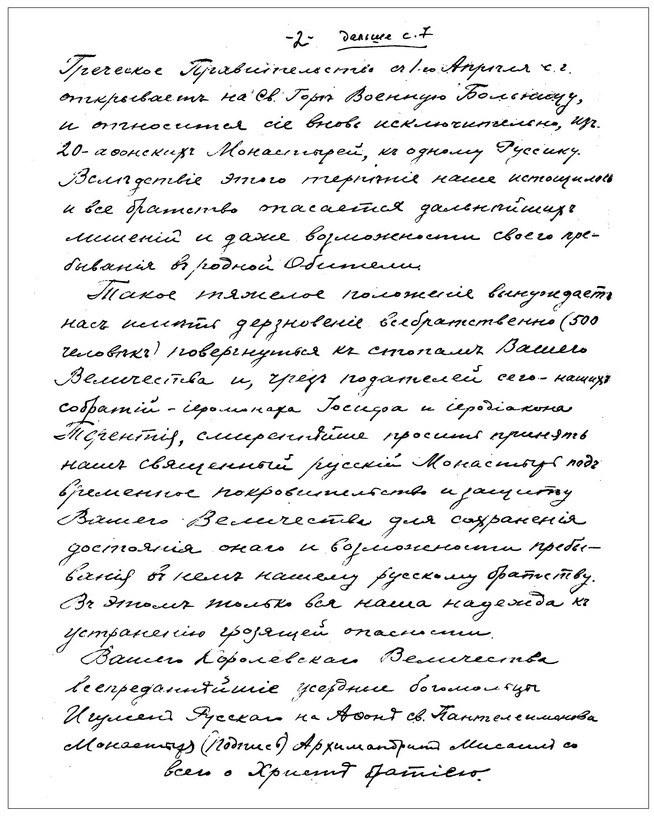 -2- дальше с. 7
Греческое Правительство съ 1-го Апрѣля с.г.
открываетъ на Св. Горѣ Военную Больницу,
и относится сіе вновь исключительно, изъ
20-афонскихъ Монастырей, къ одному Руссику.
Вслѣдствіе этого терпѣніе наше истощилось
и все братство опасается дальнѣйшихъ
лишеній и даже возможности своего пре-
быванія въ родной Обители.
Такое тяжелое положеніе вынуждаетъ
насъ имѣть дерзновеніе всебратственно (500
человѣкъ) повергнуться къ стопамъ Вашего
Величества и, чрезъ подателей сего - нашихъ
собратій - іеромонаха Іосифа и іеродіакона
смиреннѣйше просить принять
нашъ священный русскій Монастырь подъ
временное покровительство и защиту
Вашего Величества для сохраненія
достоянія онаго и возможности пребы-
ванія въ немъ нашему русскому братству.
Въ этомъ только вся наша надежда къ
устраненію грозящей опасности.
Вашего Королевскаго Величества
всепреданнѣйшіе усердные богомольцы
Игуменъ Русскаго на Афонѣ св. Пантелеимонова
Монастыря (Подпись) Архимандритъ Мисаилъ со
всею о Христѣ братіею.